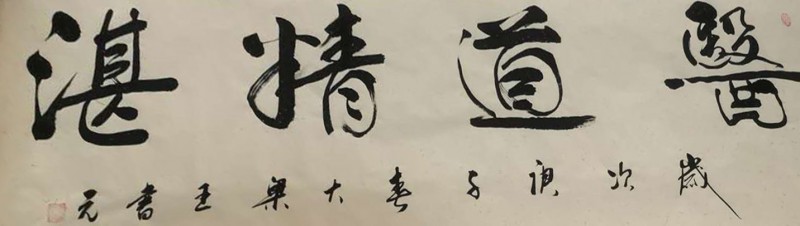 醫道精湛
歲次庚子春大梁王書元